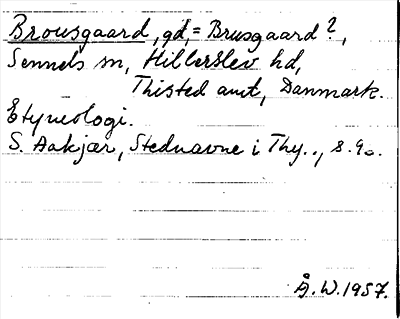 Brousgaard, gd, = Brusgaard?,
Sennels sn, Hillerslev hd,
Thisted amt, Danmark.
Etymologi.
S. Aakjær, Stednavne i Thy.., s. 90.
Å.W. 1957.